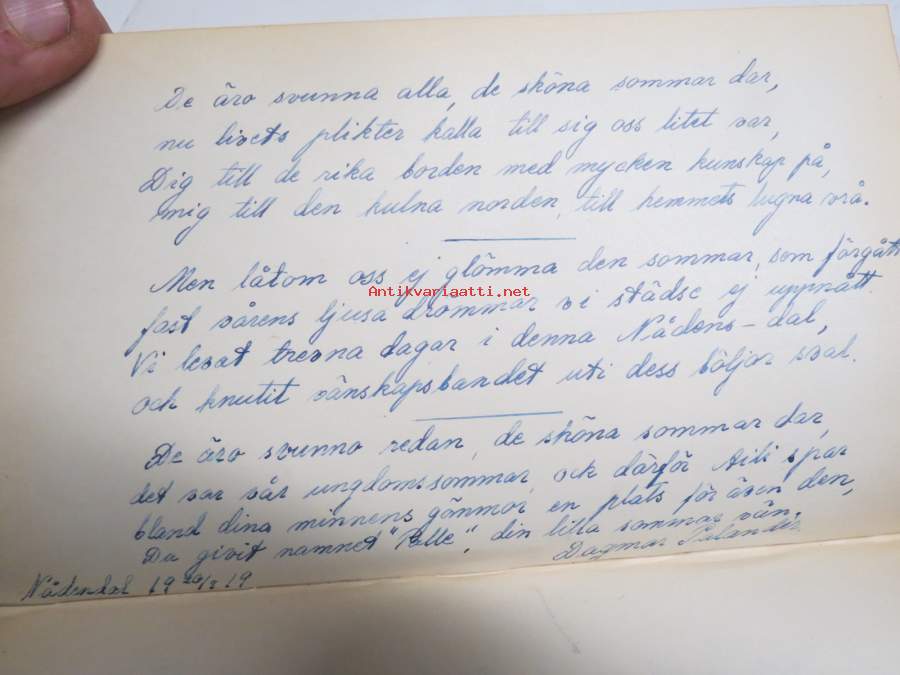 De äro svunna alla, de sköna sommar dar,
nu livets plikter kalla till sig oss litet var,
Dig till de rika borden med mycken kunskap på,
mig till den kulna norden, till hemmets lugna vrå.
Men låtom oss ej glömma den sommar, som förgått
Antikvariaatti.net
fast vårens ljusa drömmar vi städse ej uppnått.
Vi levat trevna dagar i denna Nådens-dal,
och knutit vänskapsbandet uti dess böljor sval.
De äro svunno redan, de sköna sommar dar,
det var vår ungdomssommar, och därför Aili spar
bland dina minnens gömmor en plats för även den,
Du givit namnet "Palle", din lilla sommar vän.
Dagmar
Nådendal 19 19